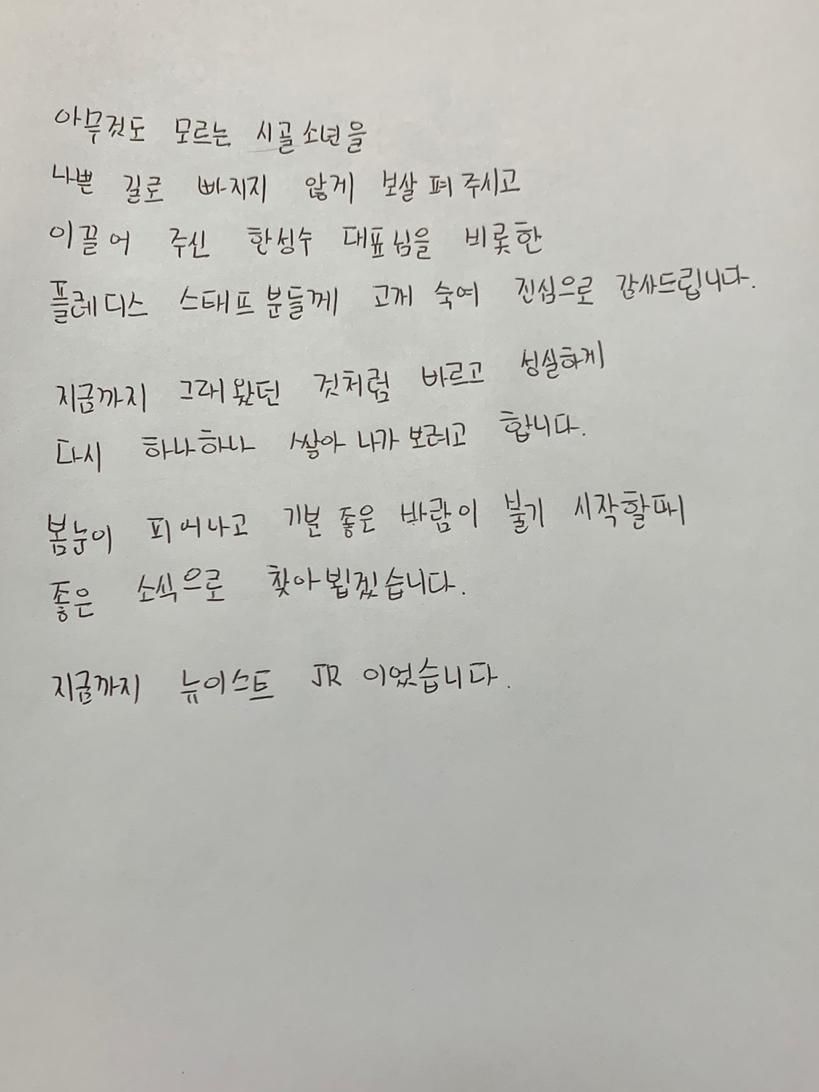 아무것도 모르는 시골소년을
나쁜 길로 빠지지 않게 보살펴 주시고
이끌어 주신 한성수 대표님을 비롯한
플레디스 스태프분들께 고개 숙여 진심으로 감사드립니다.
지금까지 그래왔던 것처럼 바르고 성실하게
다시 하나하나 쌓아 나가보려고 합니다.
봄눈이 피어나고 기분 좋은 바람이 불기 시작할때
좋은 소식으로 찾아뵙겠습니다.
지금까지 뉴이스트 JR 이었습니다.